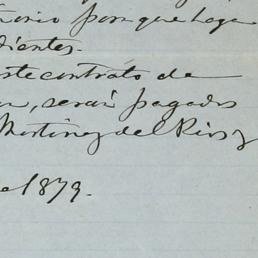 para que haga
dientes.
este contrato de
, serán pagados
Martinez del Rio y
e 1879.